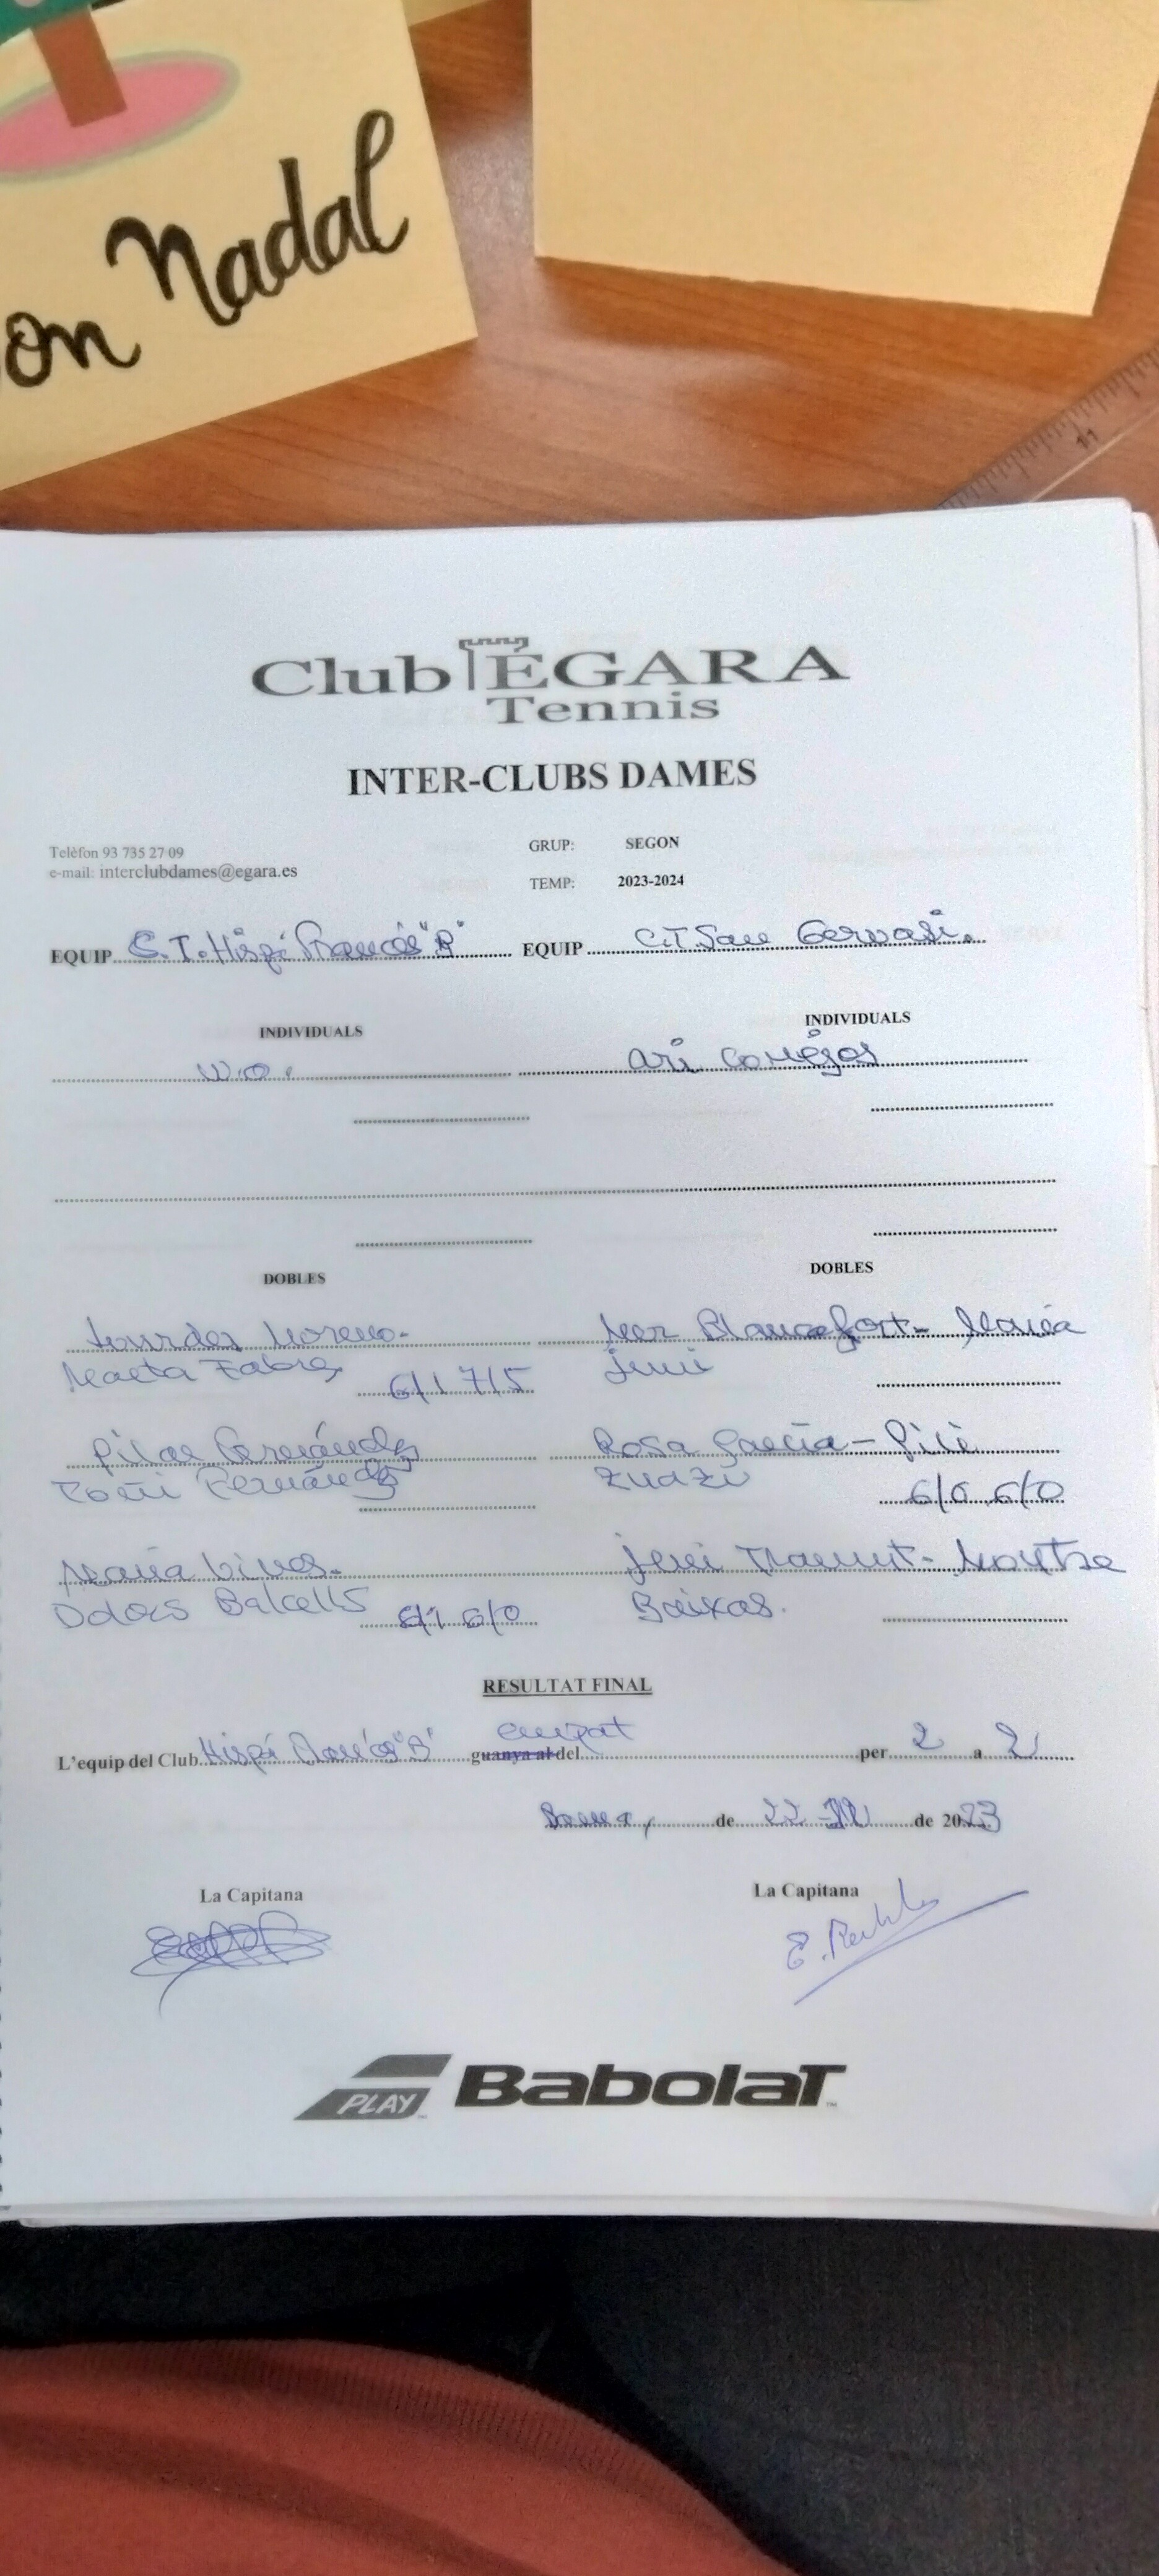 on Nadal
11
Club ÉGARA
Tennis
INTER-CLUBS DAMES
Telèfon 93 735 27 09
GRUP: SEGON
e-mail: interclubdames@egara.es
TEMP: 2023-2024
EQUIP C.T. Hispá Francés "B" EQUIP C.T. San Gervasi.
INDIVIDUALS INDIVIDUALS
W.O. Ari
DOBLES DOBLES
Lourdes Moreno- Mer Blancafort- María
Marta Fabra 6/1 7/5 Juni
Pilar Fernández Rosa García-Pili
Toñi Fernández Zuazu 6/0 6/0
María Vives- Jeni Tramunt- Montse
Dolors Balcells 6/1 6/0 Baixas.
RESULTAT FINAL
empat
L'equip del Club Hispá Francés "B" guanya al del per 2 a 2
de 22-XII de 2023
La Capitana La Capitana
PLAY Babolat